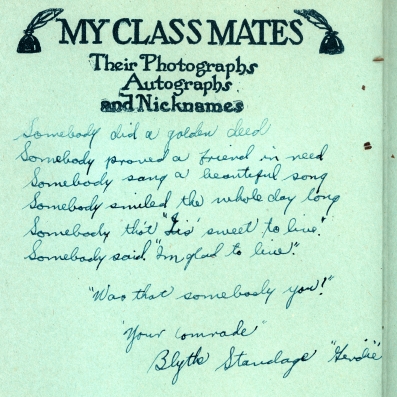 MY CLASS MATES
Their Photographs
Autographs
and Nicknames
Somebody did a golden deed
Somebody proved a friend in need
Somebody sang a beautiful song
Somebody smiled the whole day long
Somebody tho't "Tis sweet to live"
Somebody said. "Im glad to live".
"Was that somebody you!"
"Your Comrade"
Blythe Standage